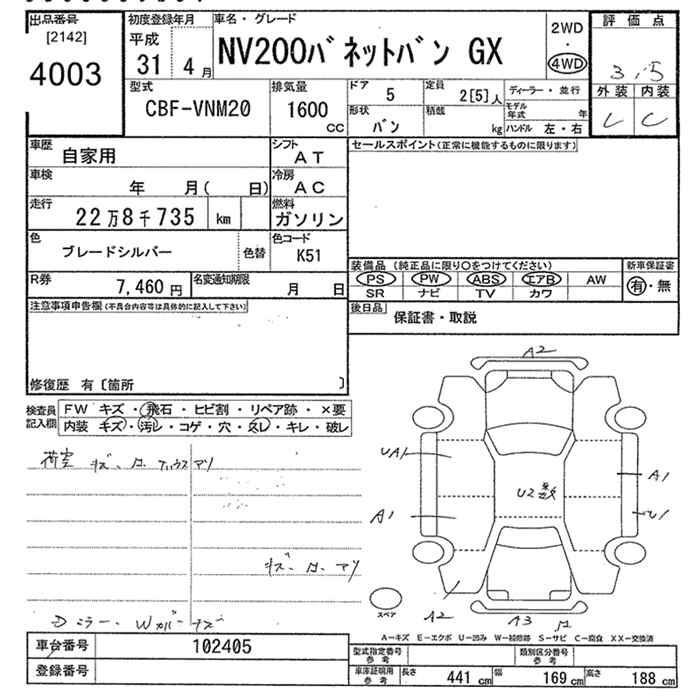 出品番号
[2142]
4003
初度登録年月
平成
31 4月
車名・グレード
NV200バネットバン GX
2WD
・
4WD
評価点
3.5
外装 内装
C
型式
CBF-VNM20
排気量
1600
CC
ドア
5
定員
2[5]人
形状
バン
積載
kg
ディーラー・並行
モデル
年式 年
ハンドル 左・右
車歴
自家用
シフト
AT
セールスポイント(正常に機能するものに限ります)
車検
年 月( 日)
冷房
AC
走行
22万8千735 km
燃料
ガソリン
色
ブレードシルバー
色替
色コード
K51
装備品 (純正品に限り〇をつけてください)
新車保証書
PS PW ABS エアB AW
SR ナビ TV カワ
有・無
R券
7,460円
名変通知期限
月 日
後日品
保証書・取説
注意事項申告欄(不具合内容等は具体的に記入して下さい)
修復歴 有〔箇所 〕
検査員
記入欄
FW キズ・飛石・ヒビ割・リペア跡・×要
内装 キズ・汚レ・コゲ・穴・スレ・キレ・破レ
A2
UA1
A1
U2
A1
U1
A2
A3
スペア
Dミラー・Wカバーキズ
A-キズ E-エクボ U-凹み W-補修跡 S-サビ C-腐食 XX-交換済
車台番号
102405
登録番号
型式指定番号
参考
類別区分番号
参考
車庫証明用
参考
長さ 441 cm
幅 169 cm
高さ 188 cm